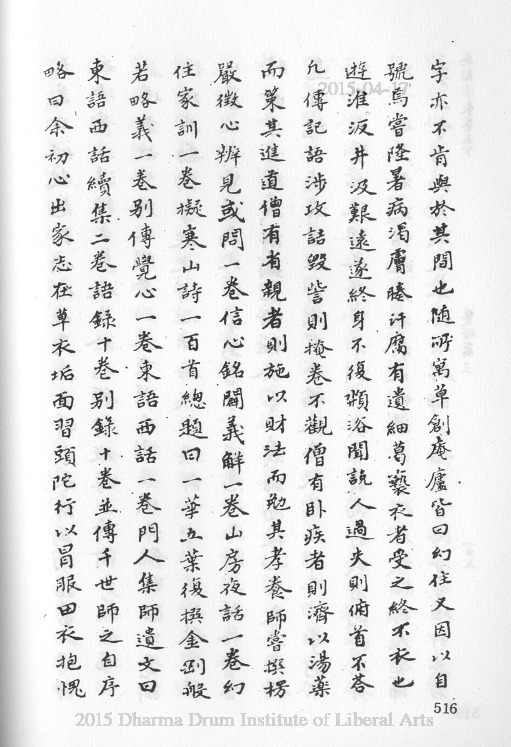 字亦不肯與於其間也随所寓草創庵廬皆曰幻住又因以自
號焉嘗隆暑病渴膚腠汗腐有遺細葛褻衣者受之終不衣也
遊淮汲井汲艱遠遂終身不復頮浴聞說人過失則俯首不荅
凢傳記語涉攻詰毀訾則掩卷不觀僧有卧疾者則濟以湯藥
而策其進道僧有省親者則施以財法而勉其孝養師嘗撰楞
嚴徵心辨見或問一卷信心銘闢義解一卷山房夜話一卷幻
住家訓一卷擬寒山詩一百首總題曰一華五葉復撰金剛般
若略義一卷别傳覺心一卷東語西話一卷門人集師遺文曰
東語西話續集二卷語錄十卷别錄十卷並傳千世師之自序
略曰余初心出家志在草衣垢面習頭陀行以冒服田衣抱愧
2015-04-17
516
2015 Dharma Drum Institute of Liberal Arts